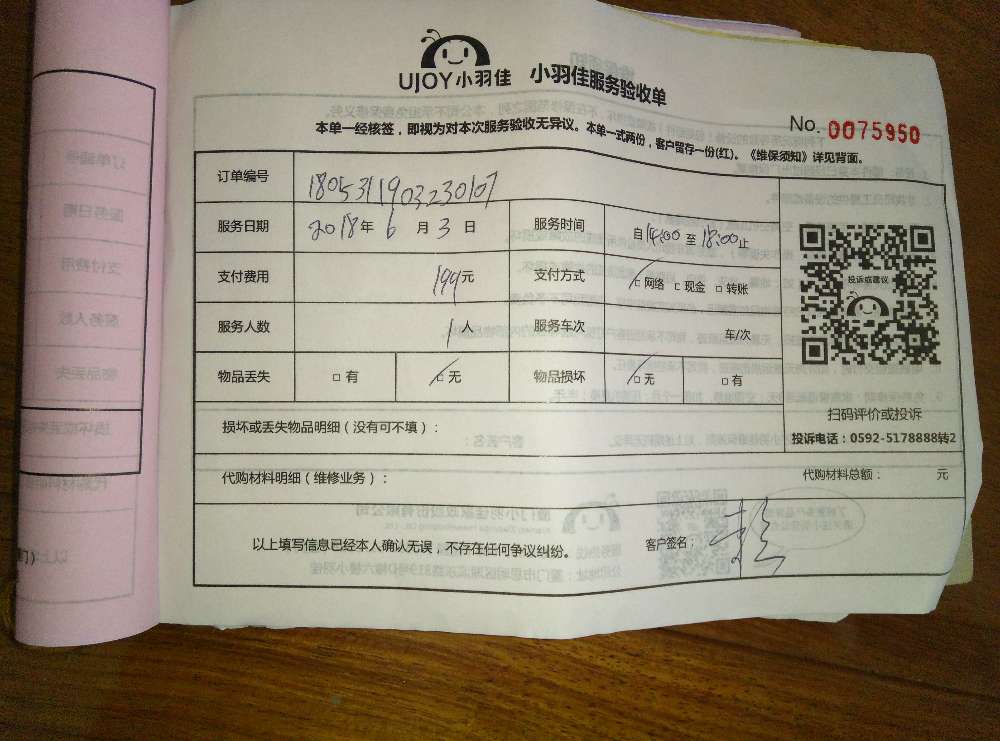 UJOY小羽佳 小羽佳服务验收单
No. 0075950
本单一经核签，即视为对本次服务验收无异议。本单一式两份，客户留存一份(红)。《维保须知》详见背面。
订单编号 180531903230107
服务日期 2018年6月3日 服务时间 自14:00至18:00止
支付费用 199元 支付方式 □网络 □现金 □转账
服务人数 1人 服务车次 车/次
物品丢失 □有 □无 物品损坏 □无 □有
投诉或建议
扫码评价或投诉
投诉电话：0592-5178888转2
损坏或丢失物品明细（没有可不填）：
代购材料明细（维修业务）： 代购材料总额： 元
以上填写信息已经本人确认无误，不存在任何争议纠纷。 客户签名：